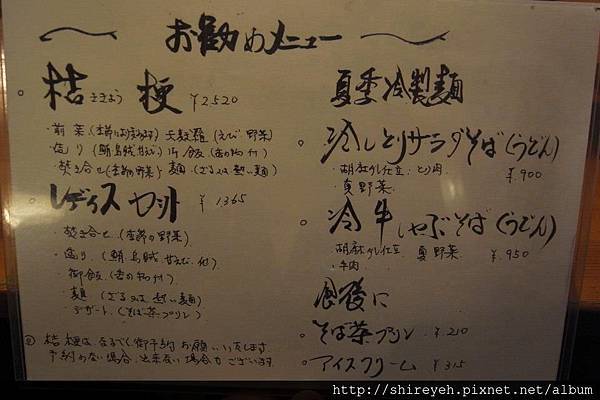 お勧めメニュー
桔梗 ききょう ¥2520
・前菜(季節により変わります) 天麩羅(えび 野菜)
・造り(鮪 烏賊 甘えび) 御飯(香の物付)
・焚き合せ(季節の野菜) 麺(ざる又は熱い麺)
レディスセット ¥1,365
・焚き合せ(季節の野菜)
・造り(鮪 烏賊 甘えび 付)
・御飯(香の物付)
・麺(ざる又は熱い麺)
・デザート(そば茶プリン)
桔梗は なるべく御予約お願いいたします
予約のない場合、出来ない場合がございます
夏季冷製麺
冷しとりサラダそば(うどん)
・胡麻ダレ仕立 とり肉 ¥900
・夏野菜
冷牛しゃぶそば(うどん)
胡麻ダレ仕立 夏野菜 ¥950
・牛肉
食後に
そば茶プリン ¥210
アイスクリーム ¥315
http://shireyeh.pixnet.net/album